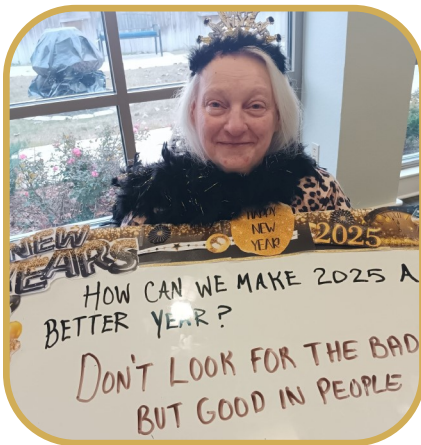 HAPPY
NEW
YEAR
NEW
YEARS
2025
HOW CAN WE MAKE 2025 A
BETTER YEAR?
DON'T LOOK FOR THE BAD
BUT GOOD IN PEOPLE